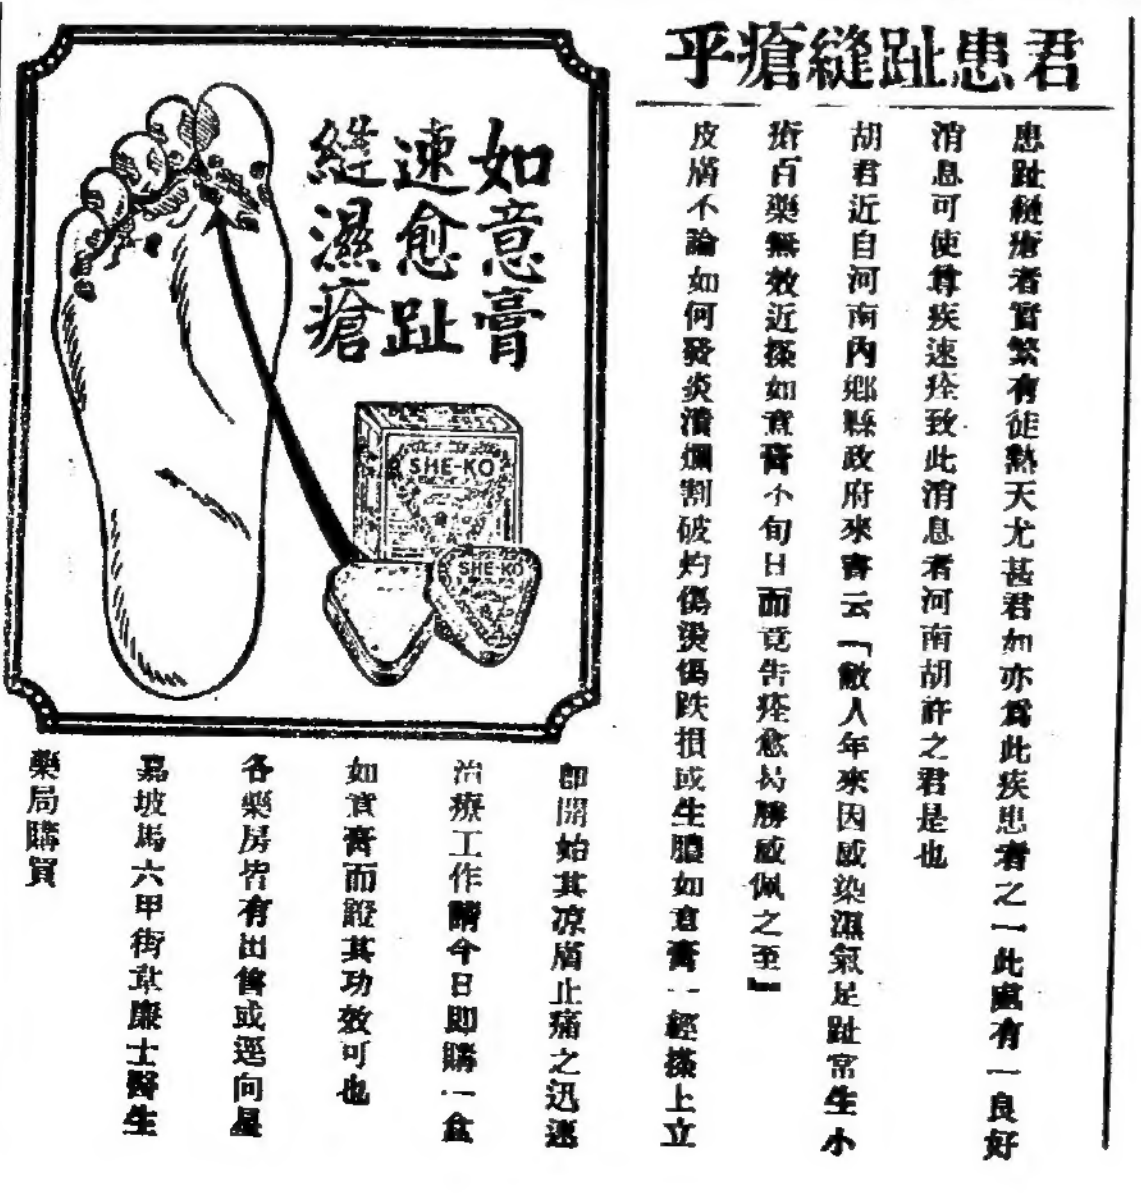 君患趾縫瘡乎
患趾縫瘡者實繁有徒熱天尤甚君如亦為此疾患者之一此處有一良好
消息可使尊疾速痊致此消息者河南胡許之君是也
胡君近自河南內鄉縣政府來書云「敝人年來因感染濕氣足趾常生小
瘡百藥無效近搽如意膏不旬日而竟告痊愈曷勝感佩之至」
皮膚不論如何發炎潰爛割破灼傷燙傷跌損或生膿如意膏一經搽上立
即開始其凉膚止痛之迅速
治療工作請今日即購一盒
如意膏而證其功效可也
各藥房皆有出售或逕向星
嘉坡馬六甲街韋廉士醫生
藥局購買
如意膏
速愈趾
縫濕瘡
SHE-KO
SHE-KO